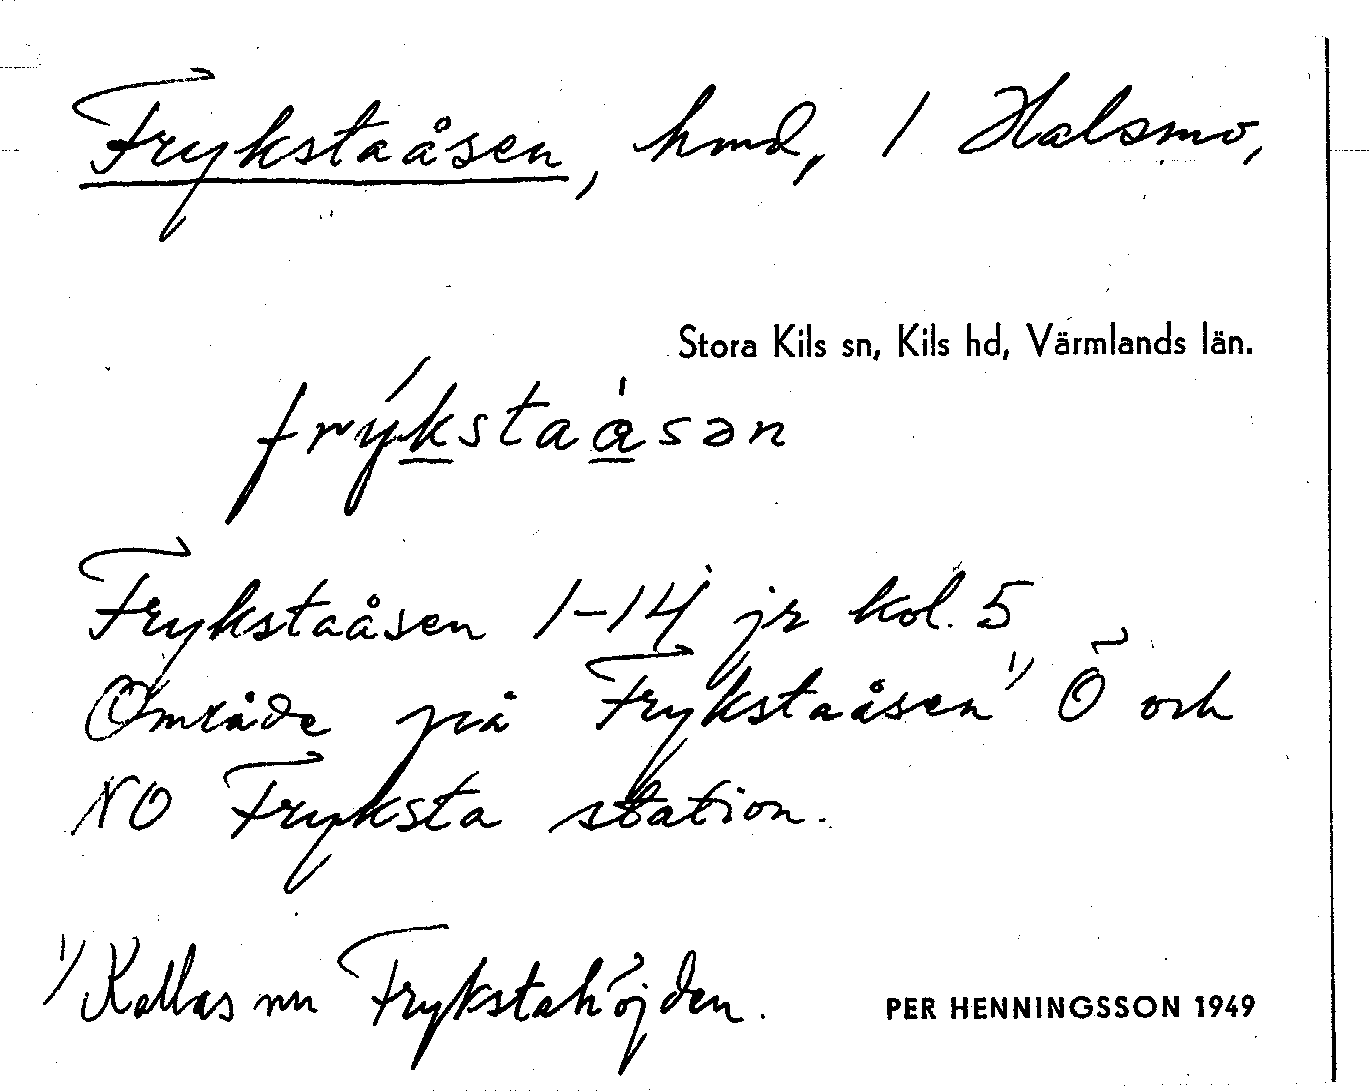 Frykstaåsen, hmd, 1 Halsmo,
Stora Kils sn, Kils hd, Värmlands län.
frýkstaåsən
Frykstaåsen 1-14 jr kol. 5
Område på Frykstaåsen 1/ Ö och
NO Fryksta station.
1/ Kallas nu Frykstahöjden.
PER HENNINGSSON 1949